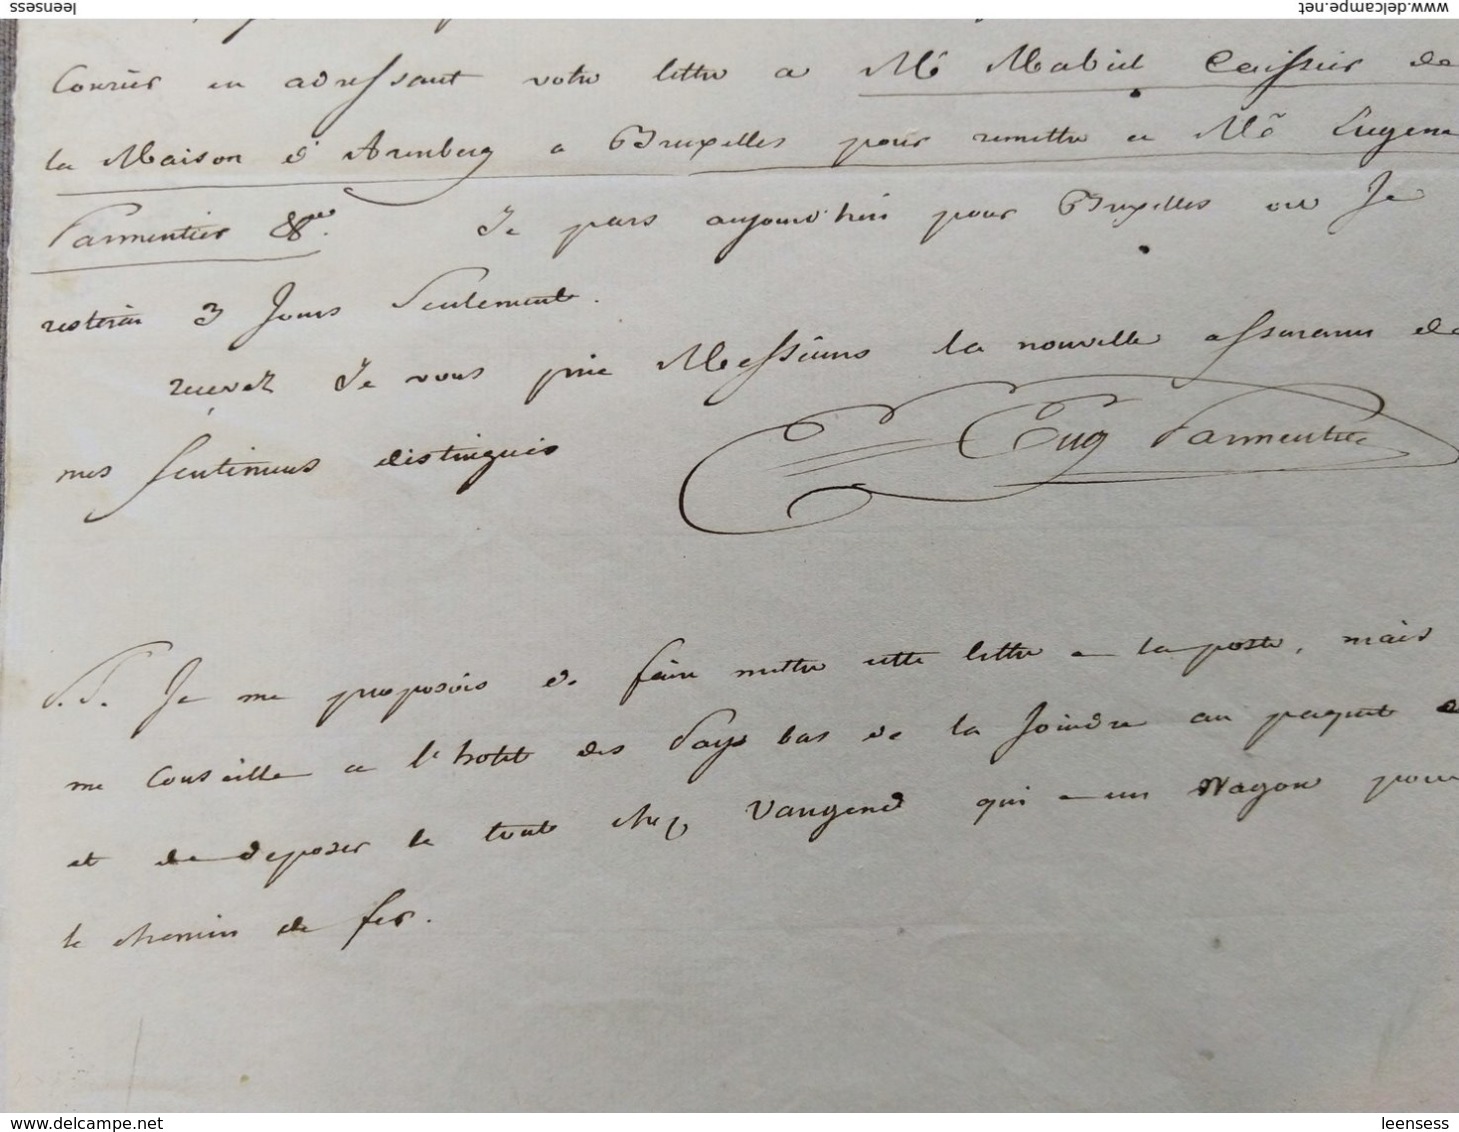 leensess www.delcampe.net
Courier en adressant votre lettre a Mr Mabiel Caissier de
la Maison d'Arenberg a Bruxelles pour remettre a Mr Eugene
Parmentier &ce. Je pars aujourd'hui pour Bruxelles ou Je
resterai 3 Jours Seulement.
recevez Je vous prie Messieurs la nouvelle assurance de
mes Sentimens distingués
Eug Parmentier
P.S. Je me proposois de faire mettre cette lettre a la poste, mais
me Conseille a l'hotel des Pays bas de la Joindre au paquet
et de deposer le tout chez Vangend qui a un Wagon pour
le chemin de fer.
www.delcampe.net leensess